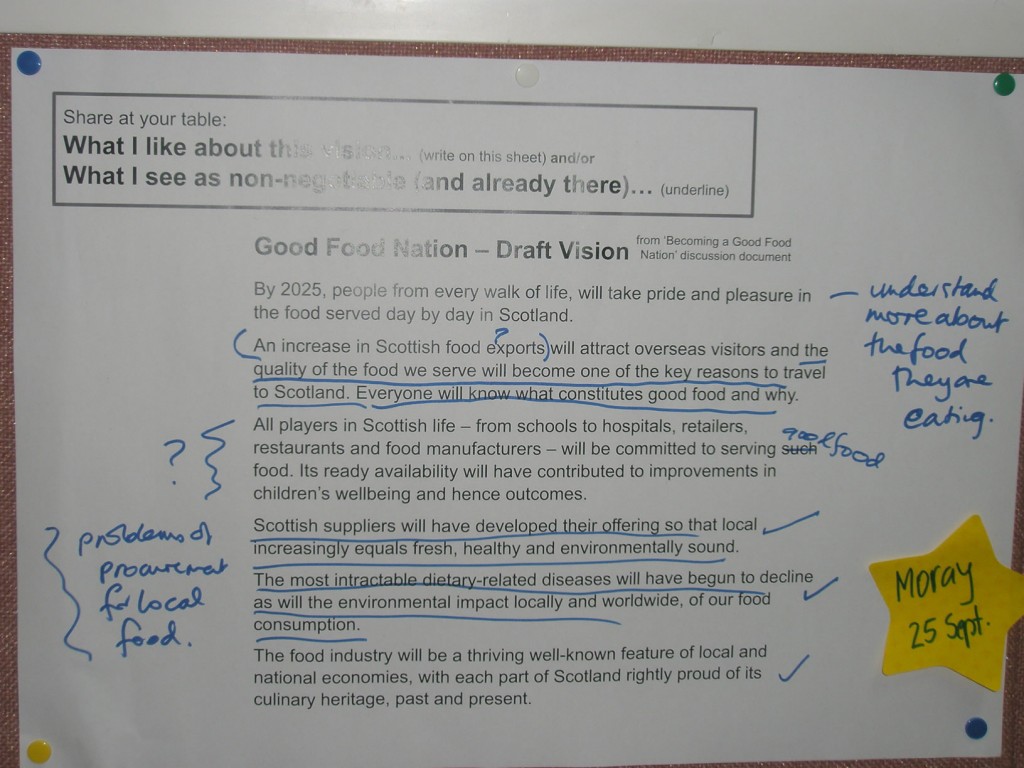 Share at your table:
What I like about this vision... (write on this sheet) and/or
What I see as non-negotiable (and already there)... (underline)
Good Food Nation – Draft Vision
from 'Becoming a Good Food
Nation' discussion document
By 2025, people from every walk of life, will take pride and pleasure in
the food served day by day in Scotland.
— understand
more about
the food
they are
eating.
?
(An increase in Scottish food exports) will attract overseas visitors and the
quality of the food we serve will become one of the key reasons to travel
to Scotland. Everyone will know what constitutes good food and why.
?
All players in Scottish life – from schools to hospitals, retailers,
restaurants and food manufacturers – will be committed to serving such
good food
food. Its ready availability will have contributed to improvements in
children's wellbeing and hence outcomes.
problems of
procurement
for local
food.
Scottish suppliers will have developed their offering so that local
increasingly equals fresh, healthy and environmentally sound.
The most intractable dietary-related diseases will have begun to decline
as will the environmental impact locally and worldwide, of our food
consumption.
The food industry will be a thriving well-known feature of local and
national economies, with each part of Scotland rightly proud of its
culinary heritage, past and present.
Moray
25 Sept.